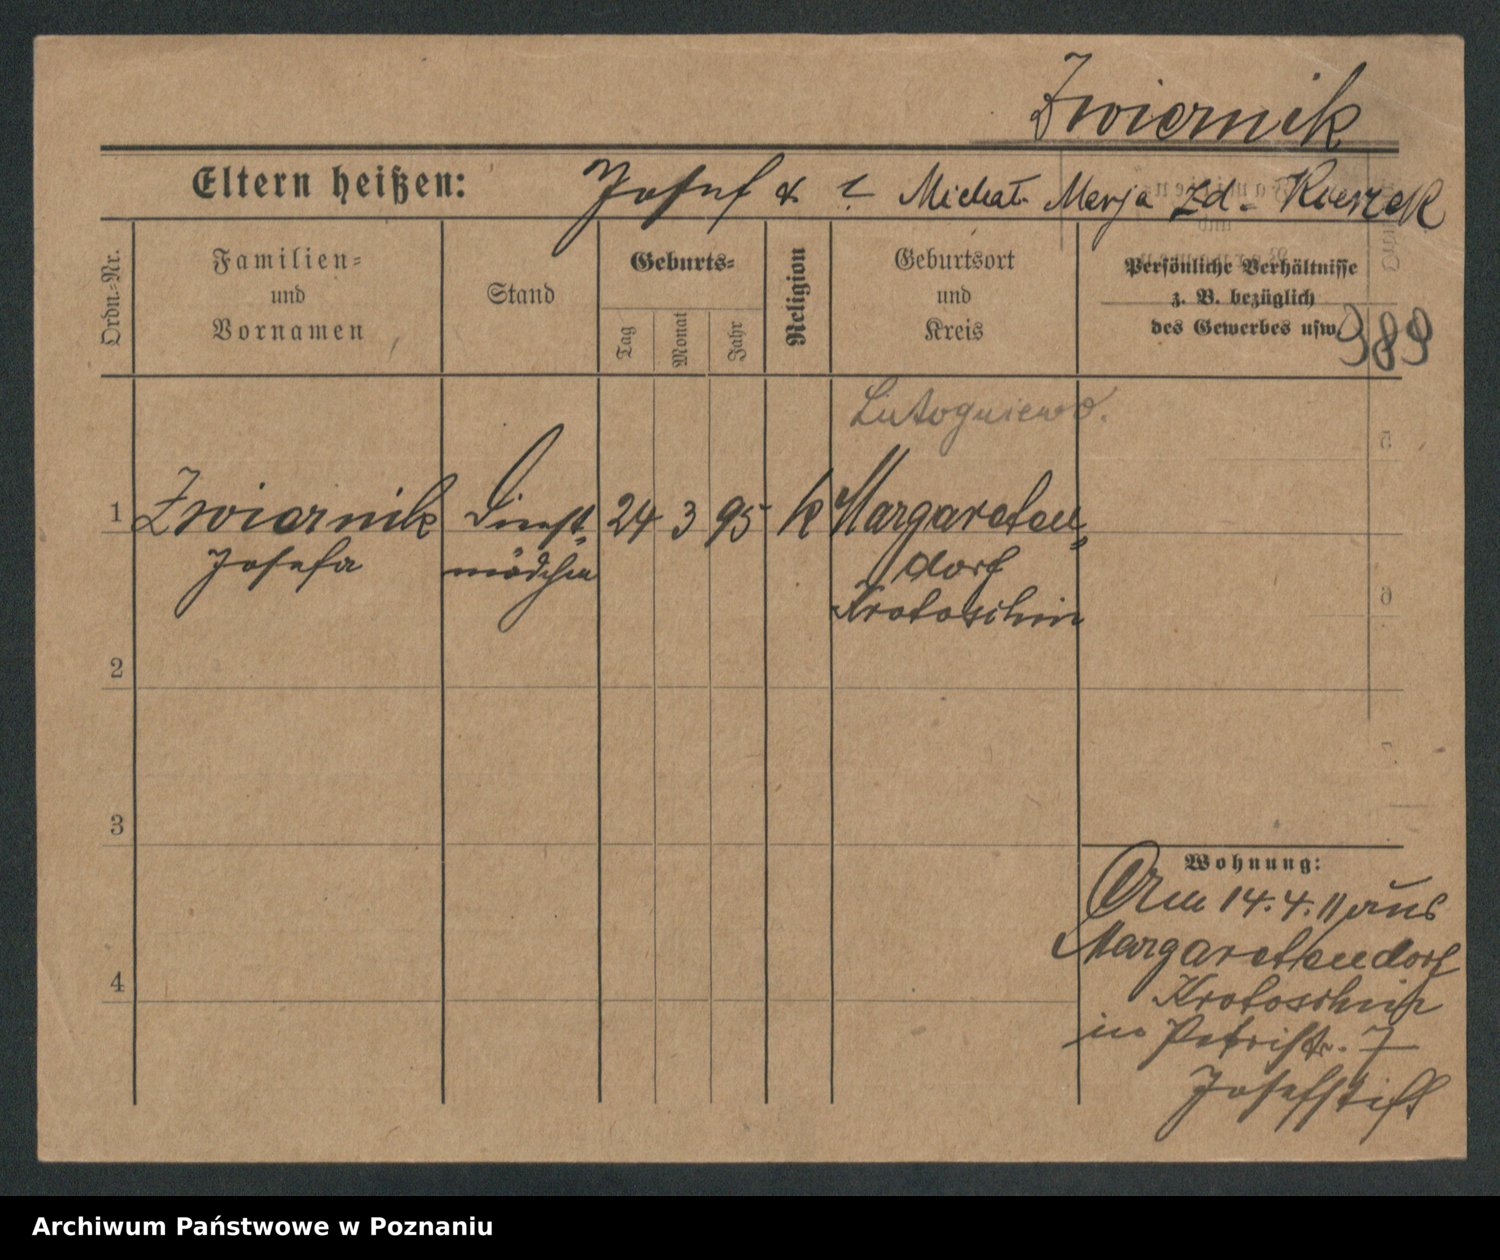 Zwiernik
Eltern heißen: Josef & ? Michał Marja zd.
Ordn.=Nr.
Familien=
und
Vornamen
Stand
Geburts=
Tag
Monat
Jahr
Religion
Geburtsort
und
Kreis
Persönliche Verhältnisse
z. B. bezüglich
des Gewerbes usw.
989
Lutogniewo.
1 Zwiernik Dienst= 24 3 95 k Margareten=
Josefa mädchen dorf
Krotoschin
2
3
4
Wohnung:
Am 14.4.11 aus
Margaretendorf
Krotoschin
in Petristr. 7
Josefstift
Archiwum Państwowe w Poznaniu